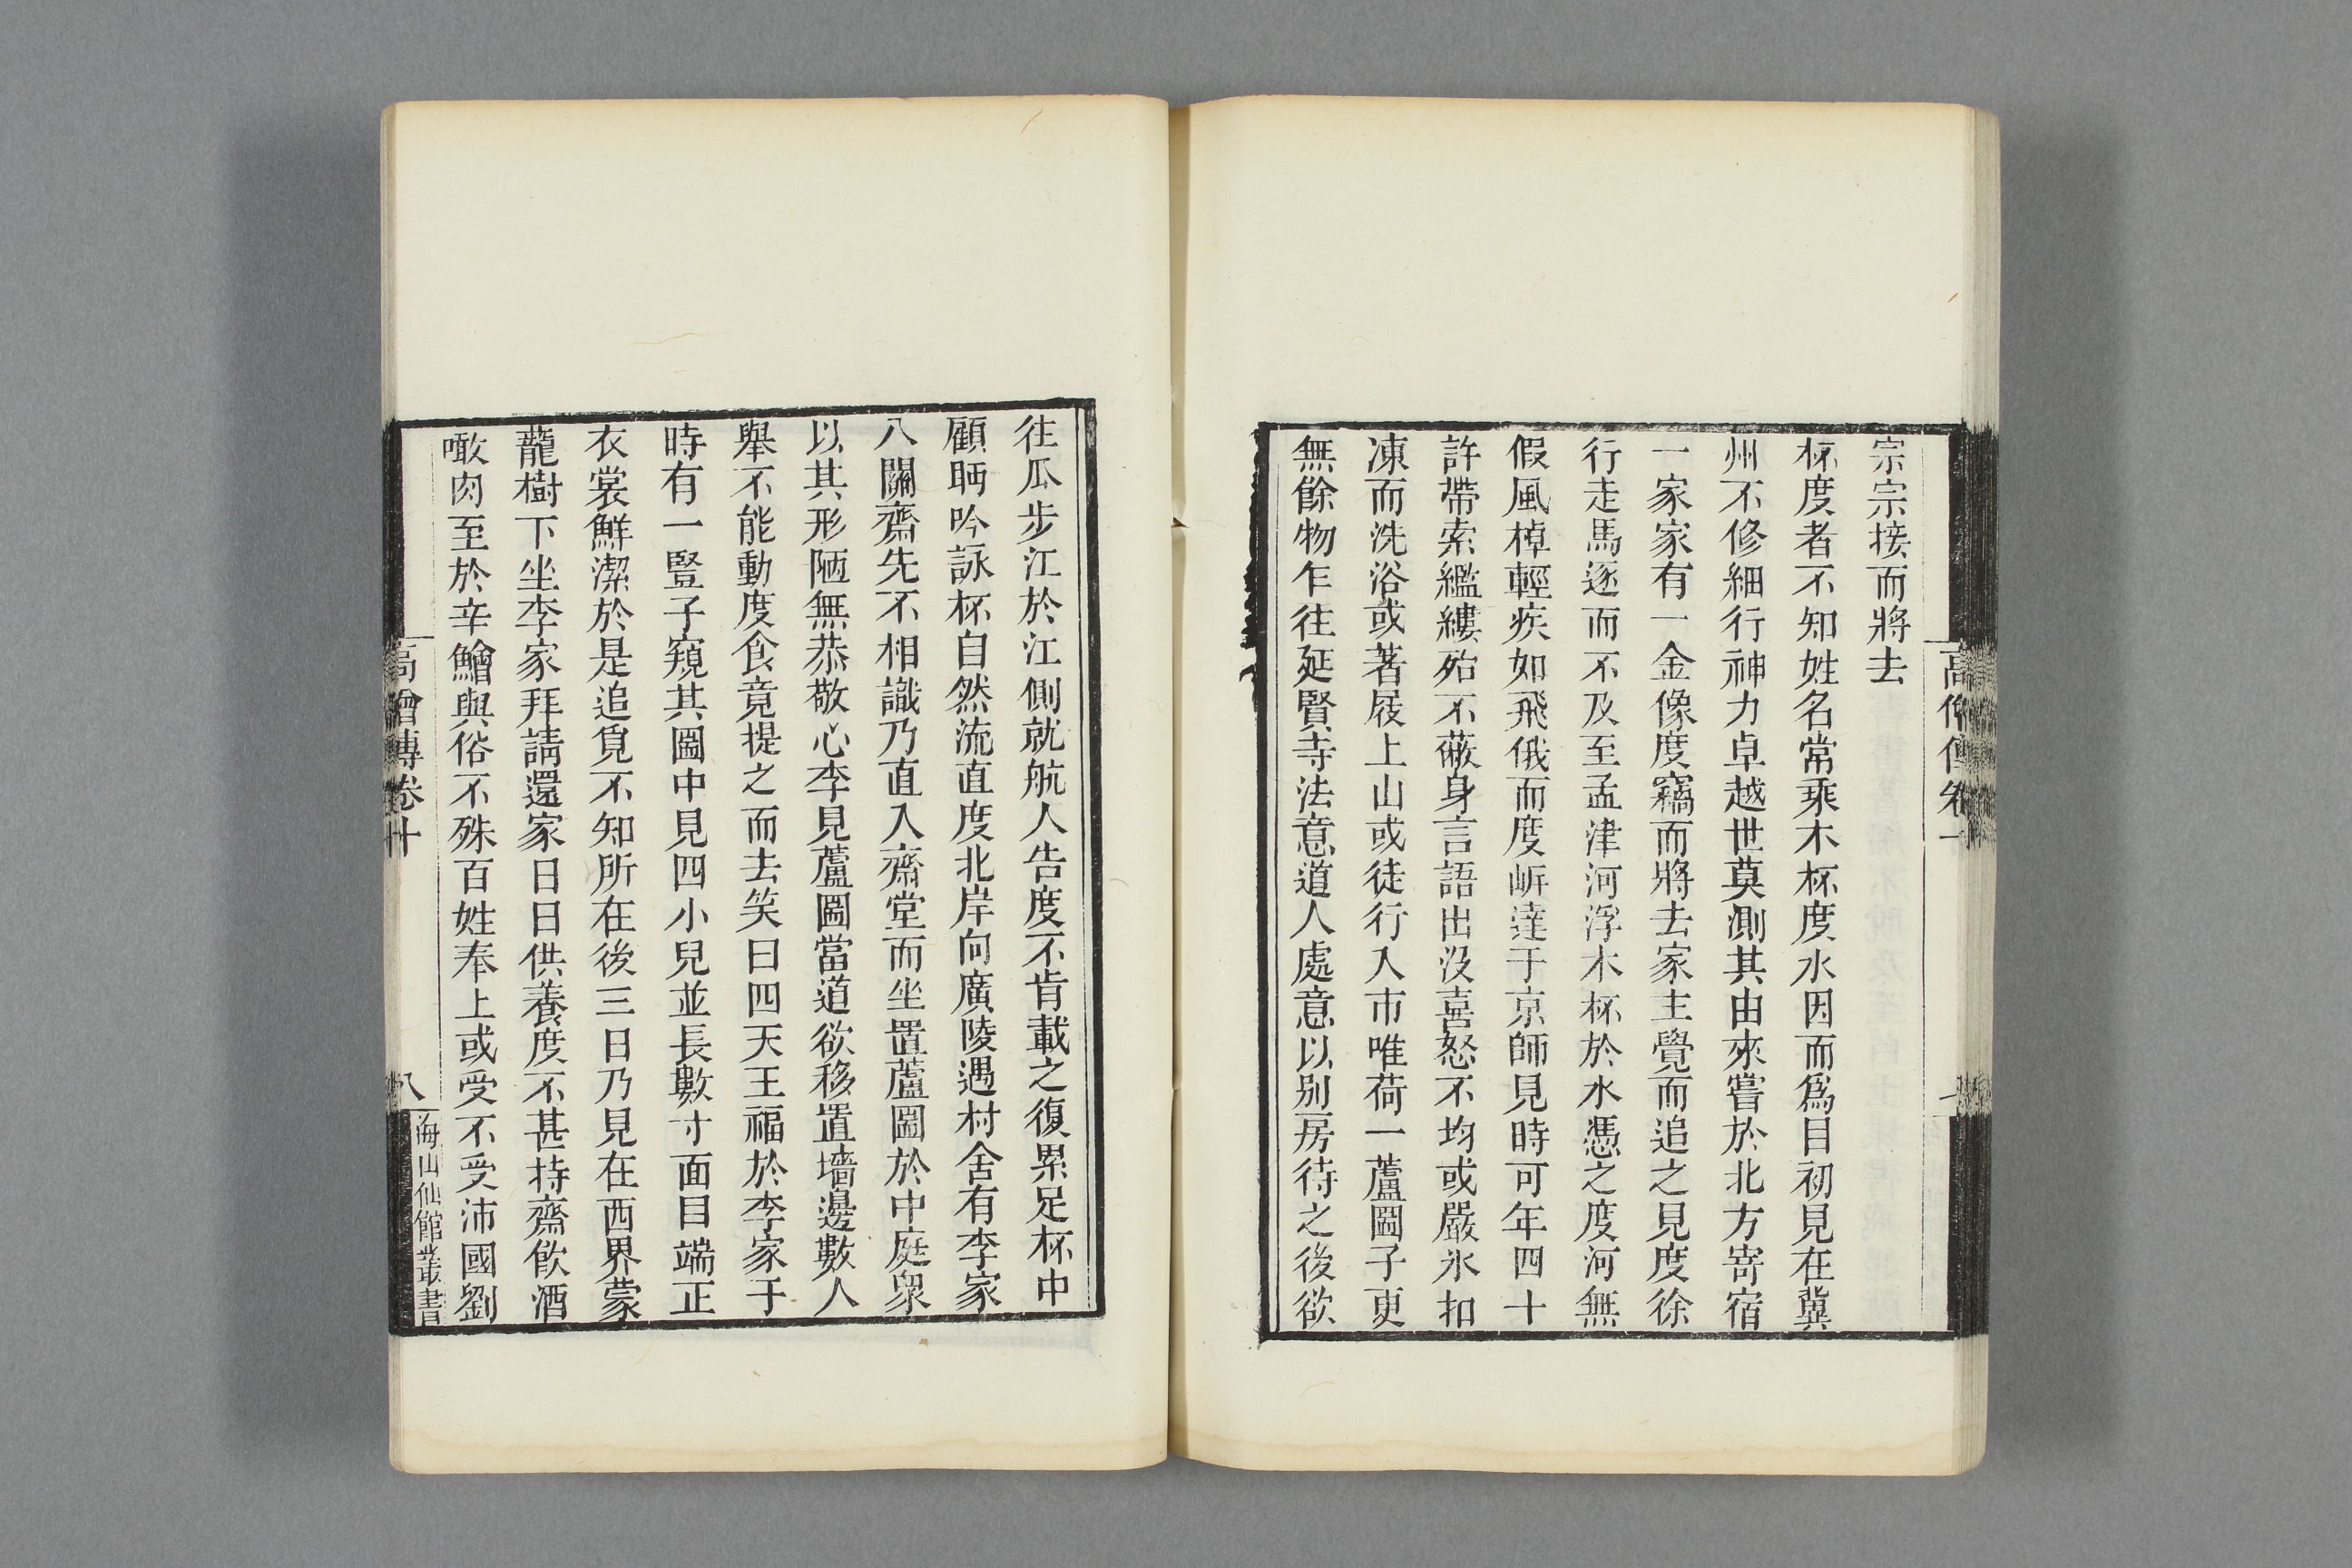 宗宗接而將去
杯度者不知姓名常乘木杯度水因而爲目初見在冀
州不修細行神力卓越世莫測其由來嘗於北方寄宿
一家家有一金像度竊而將去家主覺而追之見度徐
行走馬逐而不及至孟津河浮木杯於水憑之度河無
假風棹輕疾如飛俄而度岍達于京師見時可年四十
許帶索繿縷殆不蔽身言語出沒喜怒不均或嚴氷扣
凍而洗浴或著屐上山或徒行入市唯荷一蘆圌子更
無餘物乍往延賢寺法意道人處意以别房待之後欲
往瓜步江於江側就航人告度不肯載之復累足杯中
顧眄吟詠杯自然流直度北岸向廣陵遇村舍有李家
八關齋先不相識乃直入齋堂而坐置蘆圌於中庭衆
以其形陋無恭敬心李見蘆圌當道欲移置墻邊數人
舉不能動度食竟提之而去笑曰四天王福於李家于
時有一豎子窺其圌中見四小兒並長數寸面目端正
衣裳鮮潔於是追覓不知所在後三日乃見在西界蒙
蘢樹下坐李家拜請還家日日供養度不甚持齋飮酒
噉肉至於辛鱠與俗不殊百姓奉上或受不受沛國劉
高僧傳卷十
八
海山仙館叢書